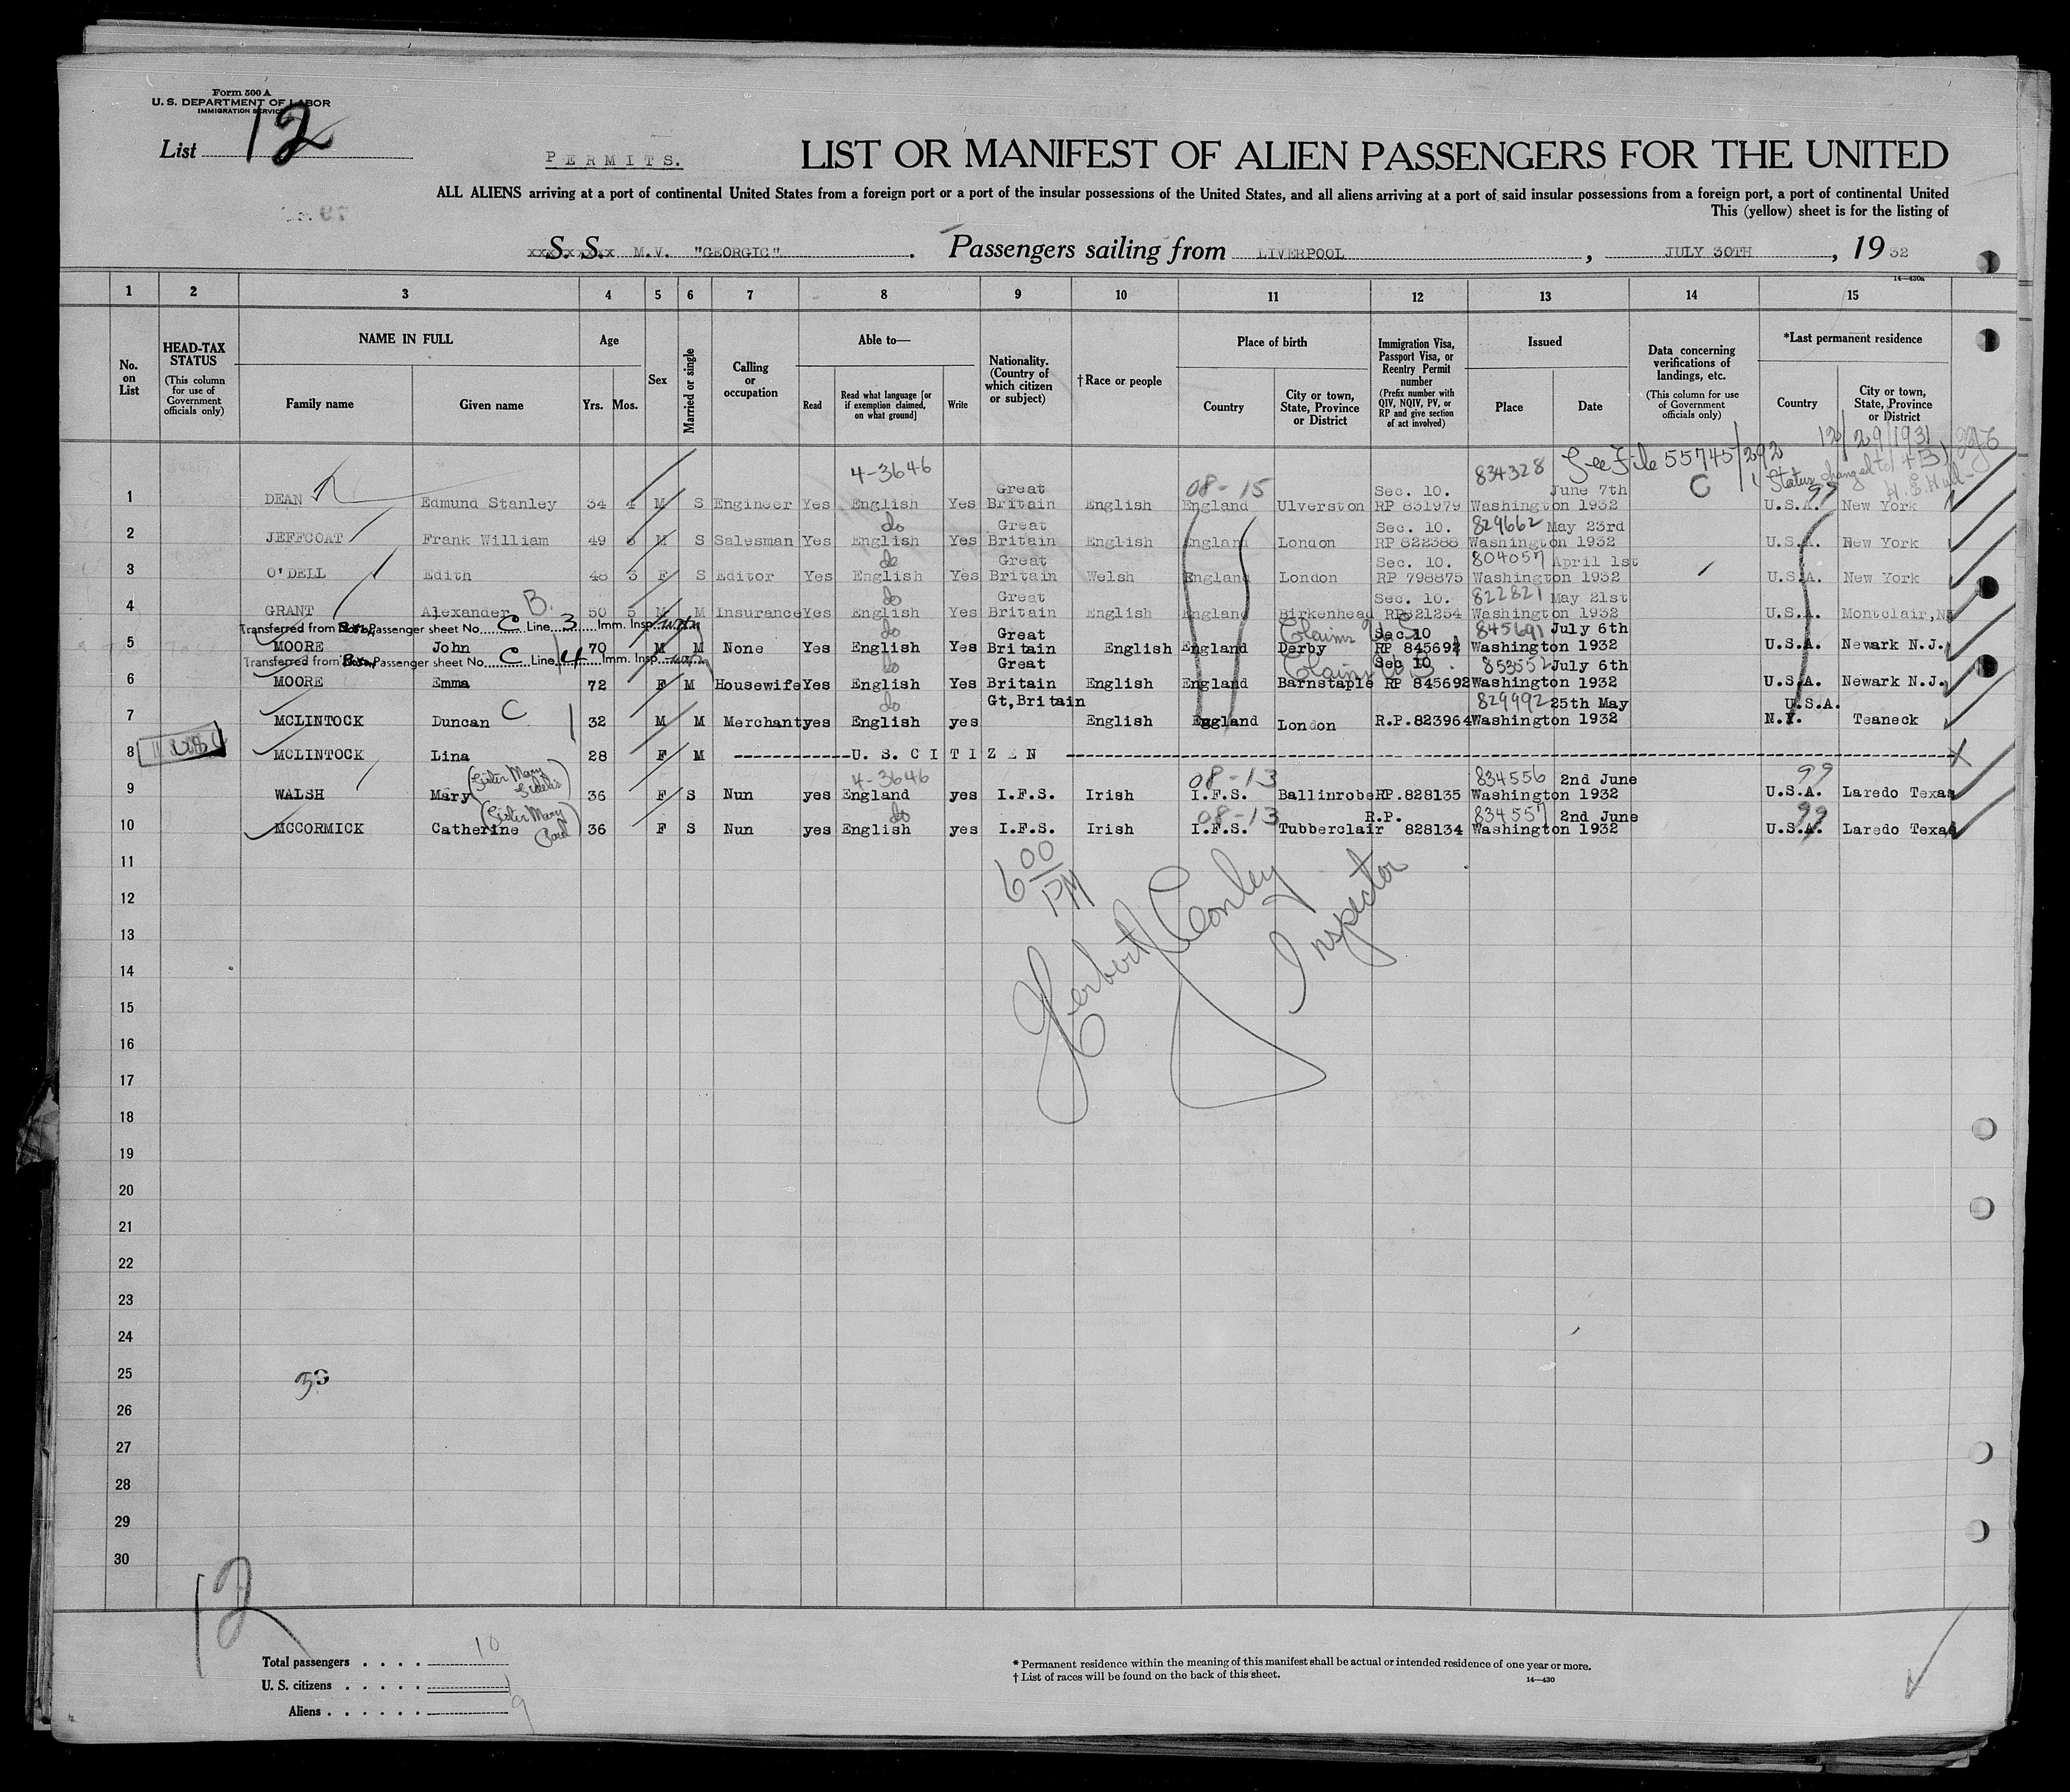 Form 500 A
U. S. DEPARTMENT OF LABOR
IMMIGRATION SERVICE
List 12
PERMITS.
LIST OR MANIFEST OF ALIEN PASSENGERS FOR THE UNITED
ALL ALIENS arriving at a port of continental United States from a foreign port or a port of the insular possessions of the United States, and all aliens arriving at a port of said insular possessions from a foreign port, a port of continental United
This (yellow) sheet is for the listing of
S. S. M.V. "GEORGIC". Passengers sailing from LIVERPOOL, JULY 30TH, 1932
14—430a
1 2 3 4 5 6 7 8 9 10 11 12 13 14 15
No. on List
HEAD-TAX STATUS (This column for use of Government officials only)
NAME IN FULL Family name Given name
Age Yrs. Mos.
Sex
Married or single
Calling or occupation
Able to— Read Read what language [or if exemption claimed, on what ground] Write
Nationality. (Country of which citizen or subject)
†Race or people
Place of birth Country City or town, State, Province or District
Immigration Visa, Passport Visa, or Reentry Permit number (Prefix number with QIV, NQIV, PV, or RP and give section of act involved)
Issued Place Date
Data concerning verifications of landings, etc. (This column for use of Government officials only)
*Last permanent residence Country City or town, State, Province or District
12/29/1931
4-3646 834328 See File 55745/292 Status changed to
1 DEAN Edmund Stanley 34 4 M S Engineer Yes English Yes Great Britain English 08-15 England Ulverston Sec. 10. RP 831979 Washington June 7th 1932 C 99 U.S.A. New York
2 JEFFCOAT Frank William 49 6 M S Salesman Yes do English Yes Great Britain English England London Sec. 10. RP 822388 829662 Washington May 23rd 1932 U.S.A. New York
3 O'DELL Edith 48 3 F S Editor Yes do English Yes Great Britain Welsh England London Sec. 10. RP 798875 804057 Washington April 1st 1932 U.S.A. New York
4 GRANT Alexander B. 50 5 M M Insurance Yes do English Yes Great Britain English England Birkenhead Sec. 10. RP821254 822821 Washington May 21st 1932 U.S.A. Montclair, NJ
Transferred from Passenger sheet No. C Line 3 Imm. Insp.
5 MOORE John 70 M M None Yes do English Yes Great Britain English England Claims U.S. Derby Sec 10 RP 845691 845691 Washington July 6th 1932 U.S.A. Newark N.J.
Transferred from Passenger sheet No. C Line 4 Imm. Insp.
6 MOORE Emma 72 F M Housewife Yes do English Yes Great Britain English England Claims Barnstaple Sec 10 RP 845692 853552 Washington July 6th 1932 U.S.A. Newark N.J.
7 MCLINTOCK Duncan C 32 M M Merchant yes do English yes Gt, Britain English England London R.P.823964 829992 Washington 25th May 1932 U.S.A. N.Y. Teaneck
8 MCLINTOCK Lina 28 F M U. S. CITIZEN
9 WALSH Mary (Sister Mary Fidelis) 36 F S Nun yes 4-3646 England yes I.F.S. Irish 08-13 I.F.S. Ballinrobe RP.828135 834556 Washington 2nd June 1932 99 U.S.A. Laredo Texas
10 MCCORMICK Catherine (Sister Mary Paul) 36 F S Nun yes do English yes I.F.S. Irish 08-13 I.F.S. Tubberclair R.P. 828134 834557 Washington 2nd June 1932 99 U.S.A. Laredo Texas
11
6 00 PM
12
Herbert Conley
Inspector
13
14
15
16
17
18
19
20
21
22
23
24
25
26
27
28
29
30
12
Total passengers 10
U. S. citizens 1
Aliens 9
* Permanent residence within the meaning of this manifest shall be actual or intended residence of one year or more.
† List of races will be found on the back of this sheet.
14—430